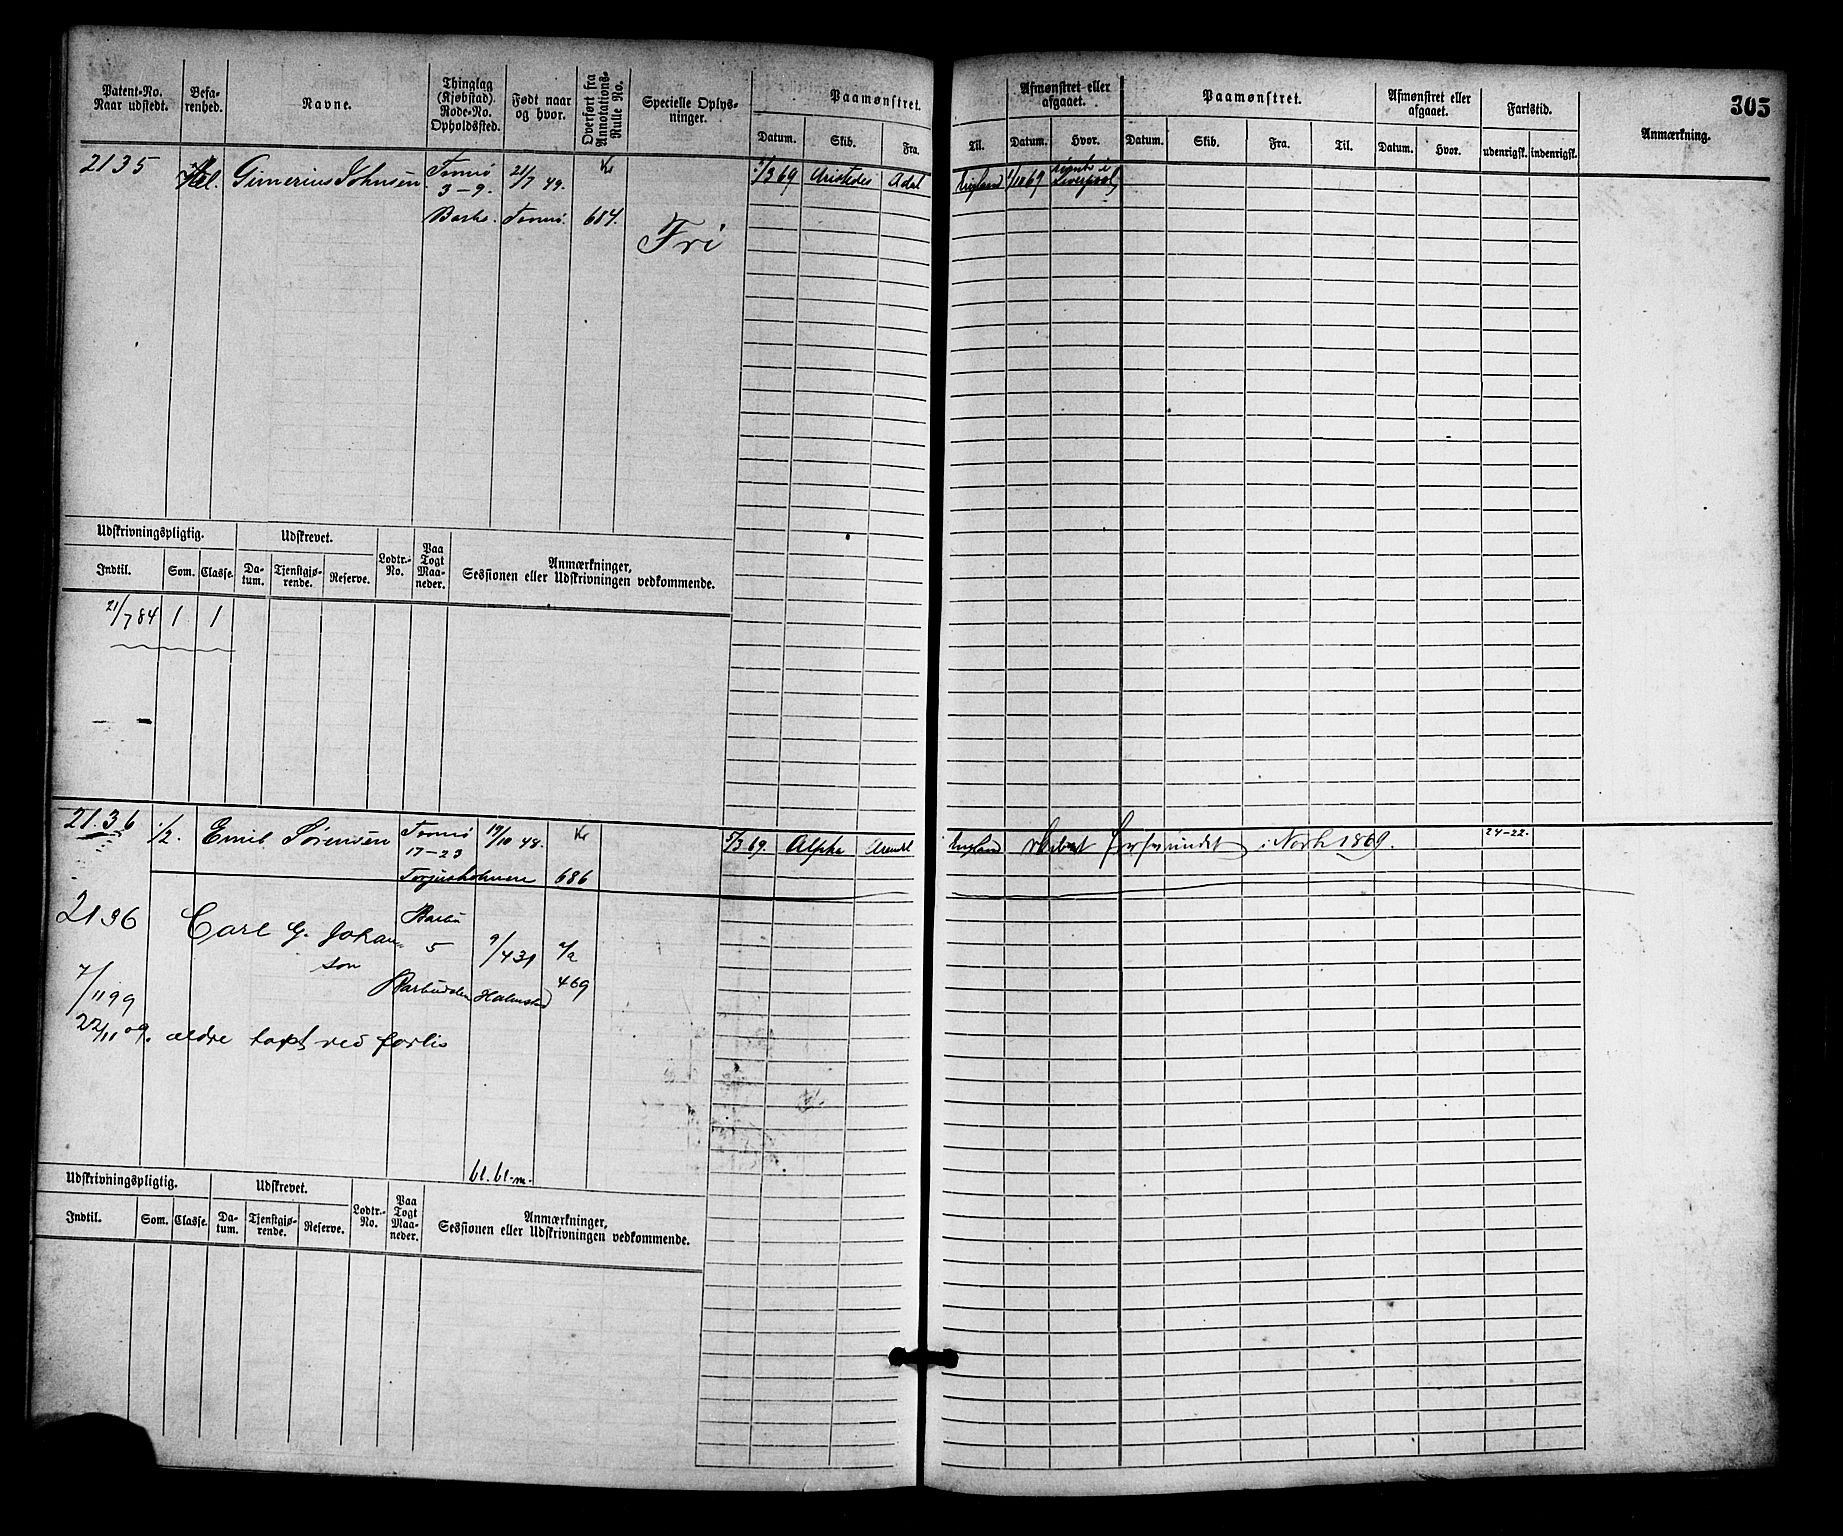 305
Patent-No. Naar udstedt. Befarenhed. Navne. Thinglag (Kjøbstad). Rode-No. Opholdssted. Født naar og hvor. Overført fra Annotations-Rulle No. Specielle Oplysninger. Paamønstret. Afmønstret eller afgaaet. Paamønstret. Afmønstret eller afgaaet. Fartstid. Anmærkning.
Datum. Skib. Fra. Til. Datum. Hvor. Datum. Skib. Fra. Til. Datum. Hvor. udenrigsk. indenrigsk.
2135 Gunerius Johnsen Tromø 21/7 49. Kr /3 69 Aristedes Adal England 1/10 69 rømt i Liverpool
3-9.
Barbo. Tromø. 684.
Fri
Udskrivningspligtig. Udskrevet. Lodtr.-No. Paa Togt Maaneder. Anmærkninger, Sessionen eller Udskrivningen vedkommende.
Indtil. Som. Classe. Datum. Tjenstgjørende. Reserve.
21/7 84 1 1
2136 1/2. Emil Sørensen Tromø 19/10 48. Kr 5/3 69. Alpha Arendl England Forsvundet i Nordh 1869. 24-22.
17-23
Torjusholmene 686
2136 Carl G. Johan- Barbu
son 5 9/4 31 2/2
Barbudalen Halmstad 469
7/11 99
22/11 09. ældre tapt ved forlis
bl. bl. m.
Udskrivningspligtig. Udskrevet. Lodtr.-No. Paa Togt Maaneder. Anmærkninger, Sessionen eller Udskrivningen vedkommende.
Indtil. Som. Classe. Datum. Tjenstgjørende. Reserve.